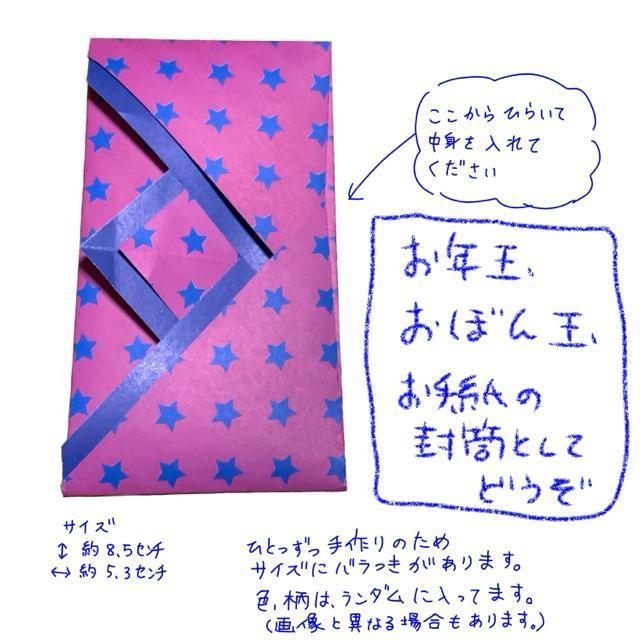 ここからひらいて
中身を入れて
ください
お年玉、
おぼん玉、
お手紙の
封筒として
どうぞ
サイズ
↕ 約8.5センチ
↔ 約5.3センチ
ひとつずつ手作りのため
サイズにバラつきがあります。
色、柄は、ランダムに入ってます。
(画像と異なる場合もあります。)